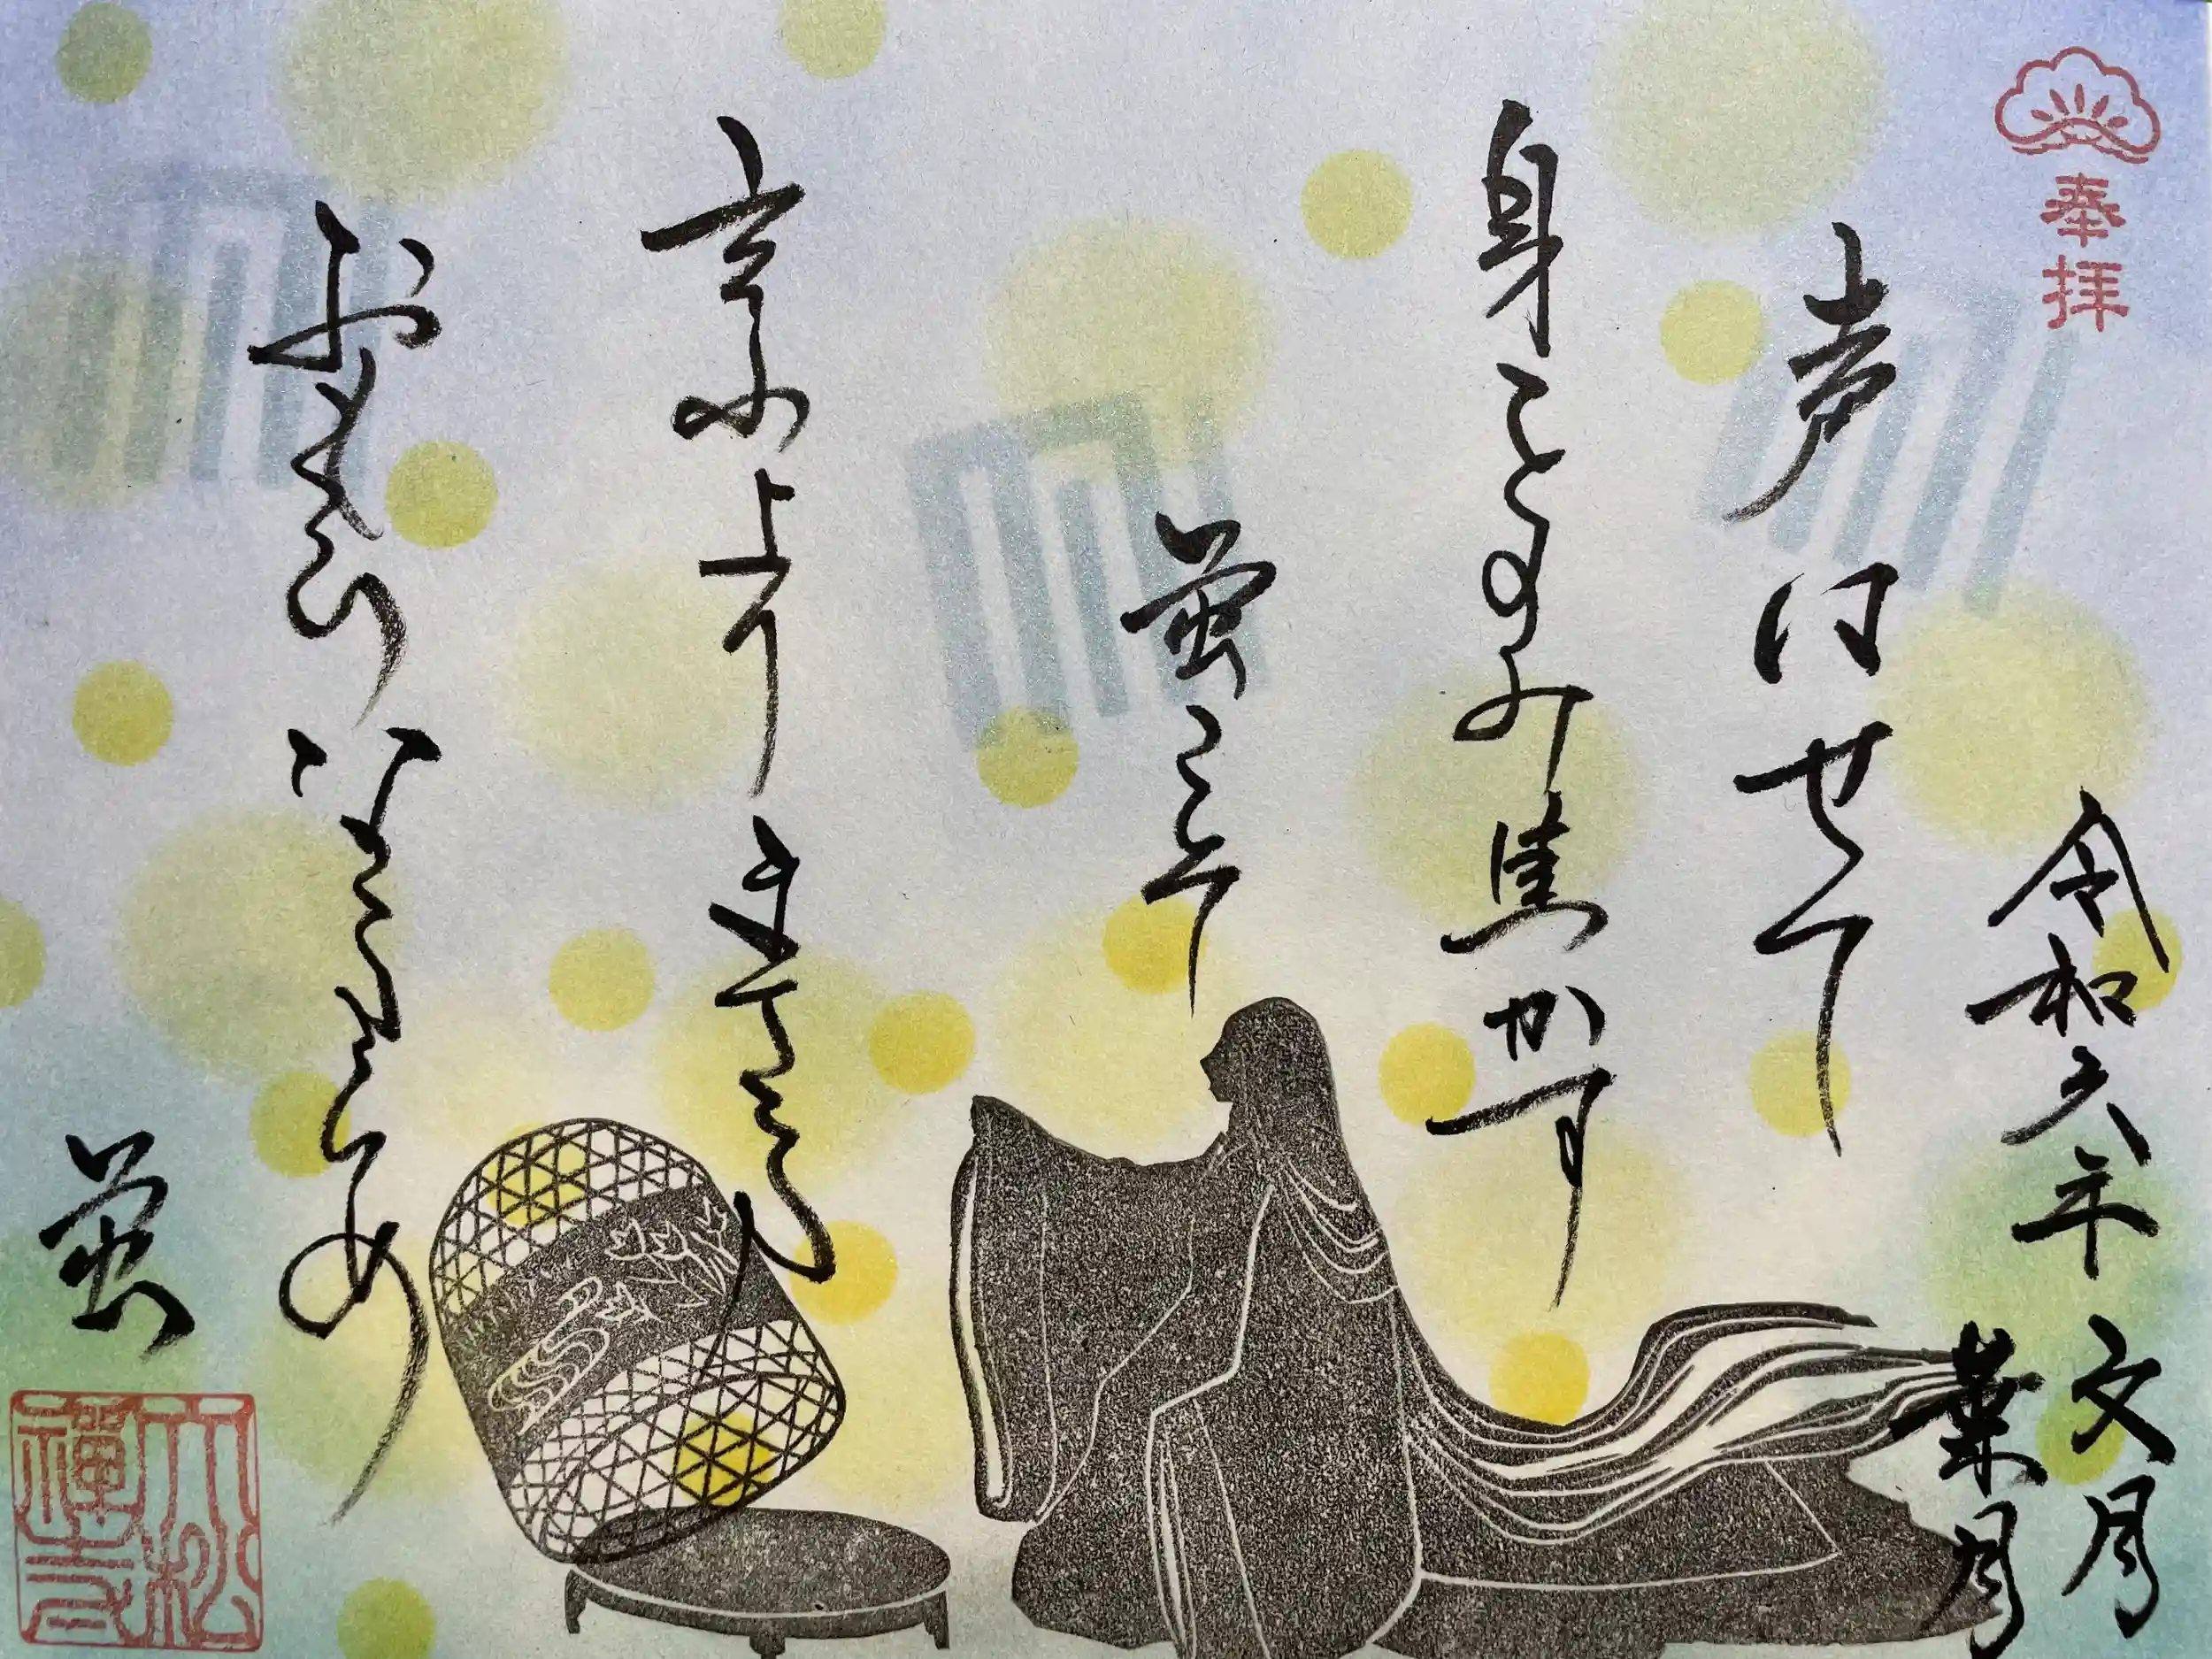 奉拝
令和六年 文月
葉月
声はせて
身をのみ焦かす
蛍こそ
言ふよりまさる
おもひなるらめ
蛍